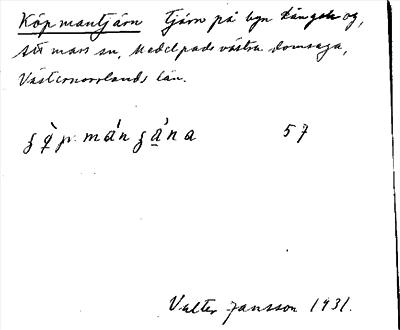 Köpmantjärn Tjärn på byn Långsk og,
Attmars sn, Medelpads västra domsaga,
Västernorrlands län.
57
Valter Jansson 1931.